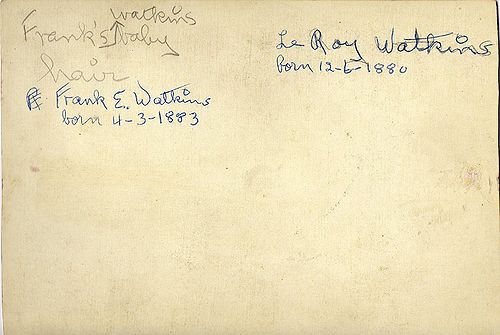 Frank's Watkins baby
hair
Frank E. Watkins
born 4-3-1883
Le Roy Watkins
born 12-6-1880